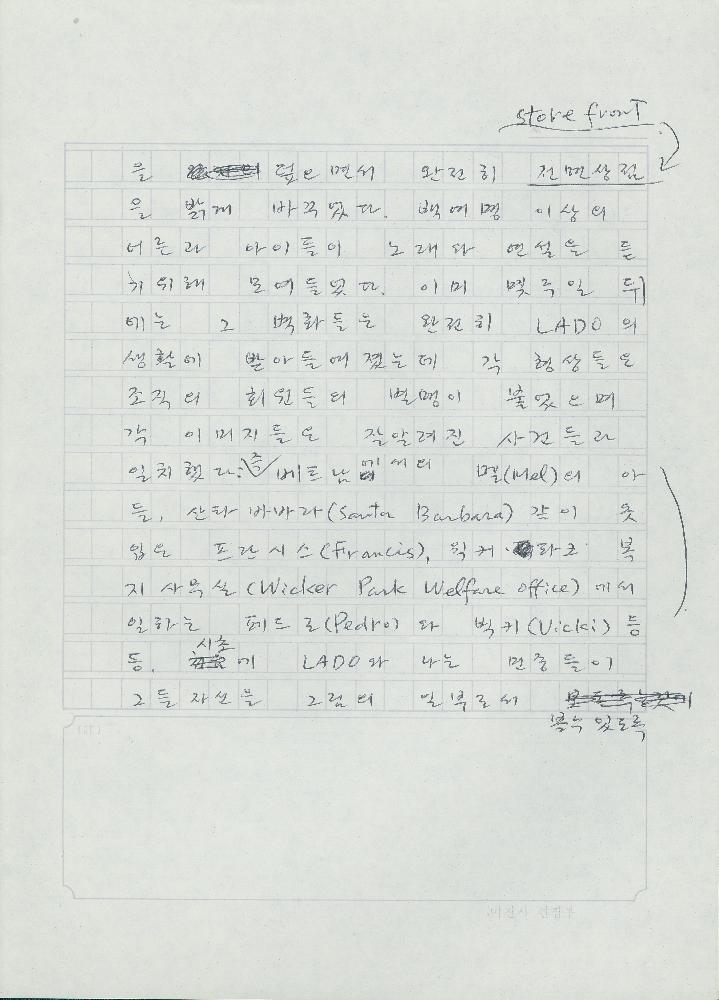 store front
을 덮으면서 완전히 전면상점
을 밝게 바꾸었다. 백여명 이상의
어른과 아이들이 노래와 연설을 듣
기위해 모여들었다. 이미 몇주일 뒤
에는 그 벽화들은 완전히 LADO의
생활에 받아들여졌는데 각 형상들은
조직의 회원들의 별명이 붙었으며
각 이미지들은 잘알려진 사건들과
일치했다. 즉 베트남에서의 멜(Mel)의 아
들, 산타 바바라(Santa Barbara) 같이 옷
입은 프란시스(Francis), 윅커·파크 복
지사무실(Wicker Park Welfare office)에서
일하는 페드로(Pedro)와 빅키(Vicki) 등
등. 시초에 LADO와 나는 민중들이
그들 자신을 그림의 일부로서
볼수 있도록